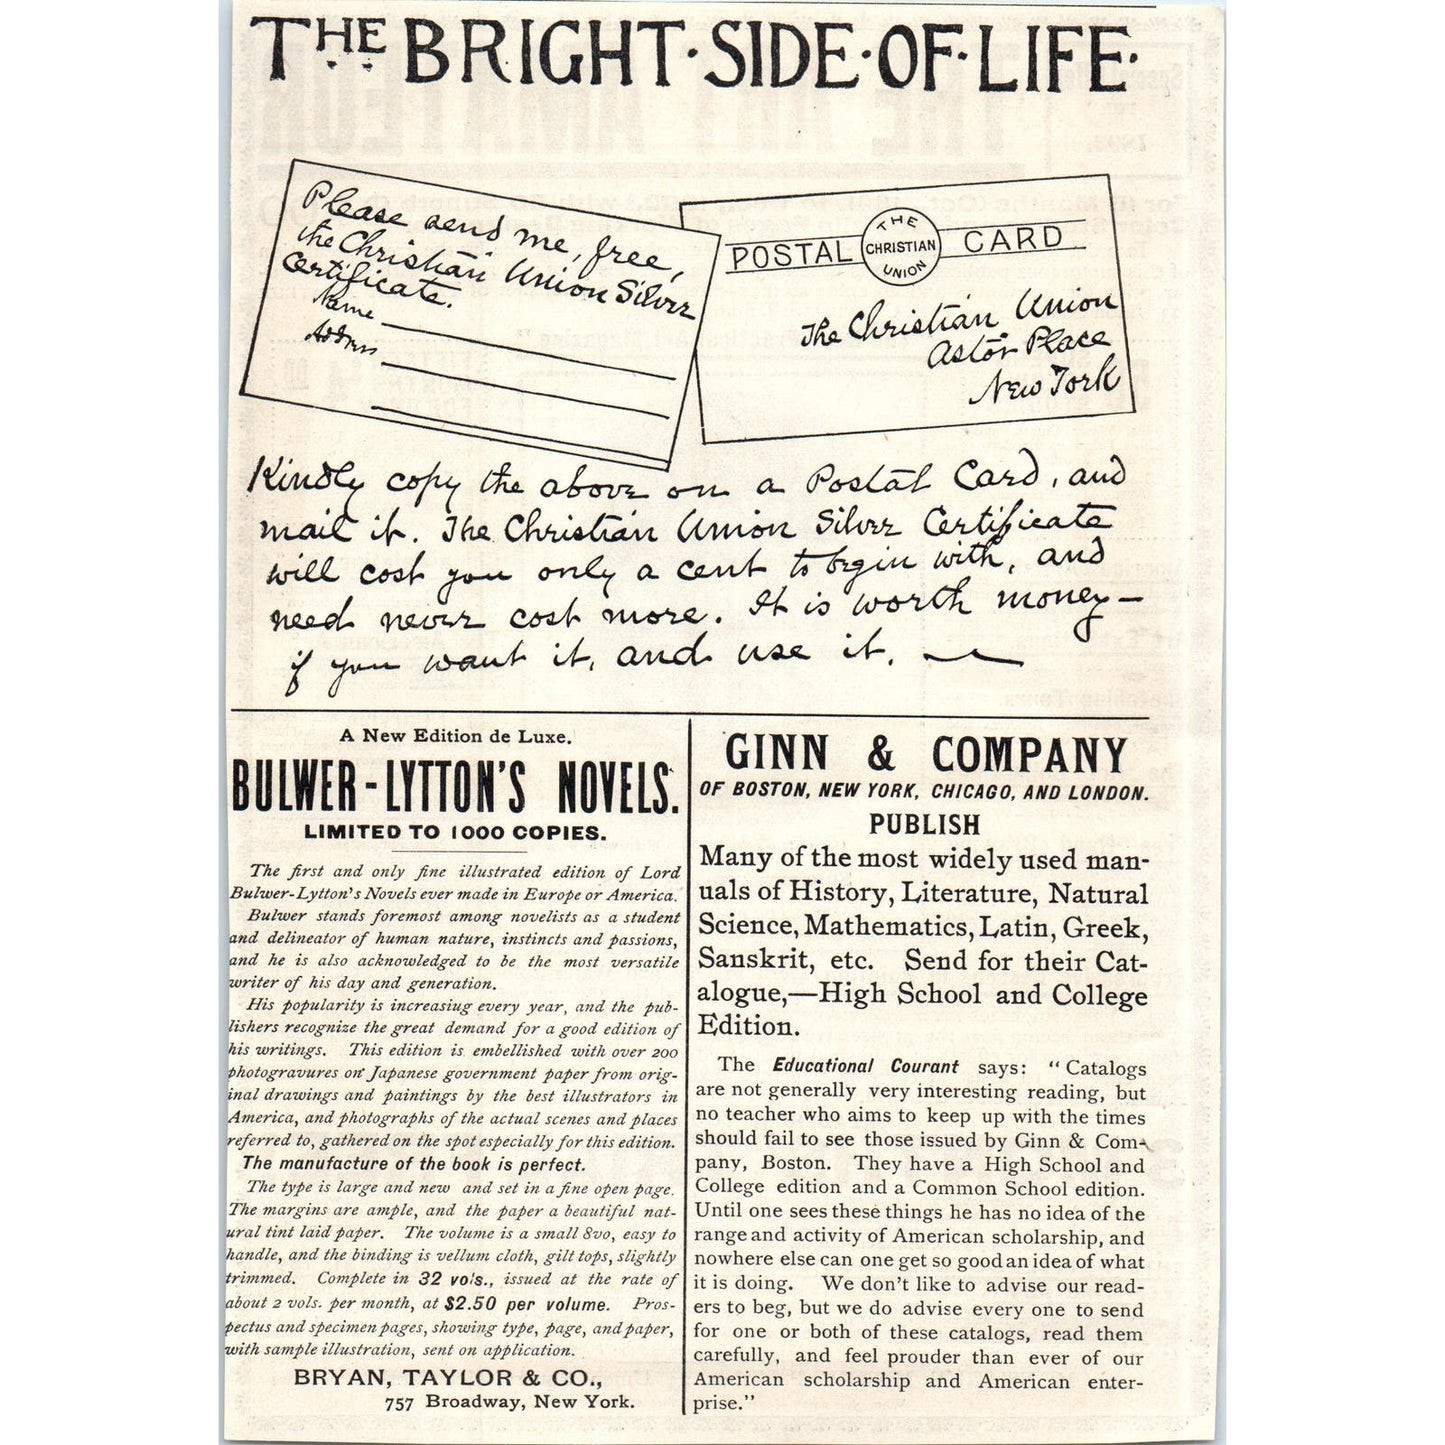 THE BRIGHT·SIDE·OF·LIFE·
Please send me, free,
the Christian Union Silver
Certificate.
Name
Address
POSTAL CARD
THE
CHRISTIAN
UNION
The Christian Union
Astor Place
New York
Kindly copy the above on a Postal Card, and
mail it. The Christian Union Silver Certificate
will cost you only a cent to begin with, and
need never cost more. It is worth money—
if you want it, and use it.
A New Edition de Luxe.
BULWER-LYTTON'S NOVELS.
LIMITED TO 1000 COPIES.
The first and only fine illustrated edition of Lord
Bulwer-Lytton's Novels ever made in Europe or America.
Bulwer stands foremost among novelists as a student
and delineator of human nature, instincts and passions,
and he is also acknowledged to be the most versatile
writer of his day and generation.
His popularity is increasiug every year, and the pub-
lishers recognize the great demand for a good edition of
his writings. This edition is embellished with over 200
photogravures on Japanese government paper from orig-
inal drawings and paintings by the best illustrators in
America, and photographs of the actual scenes and places
referred to, gathered on the spot especially for this edition.
The manufacture of the book is perfect.
The type is large and new and set in a fine open page.
The margins are ample, and the paper a beautiful nat-
ural tint laid paper. The volume is a small 8vo, easy to
handle, and the binding is vellum cloth, gilt tops, slightly
trimmed. Complete in 32 vols., issued at the rate of
about 2 vols. per month, at $2.50 per volume. Pros-
pectus and specimen pages, showing type, page, and paper,
with sample illustration, sent on application.
BRYAN, TAYLOR & CO.,
757 Broadway, New York.
GINN & COMPANY
OF BOSTON, NEW YORK, CHICAGO, AND LONDON.
PUBLISH
Many of the most widely used man-
uals of History, Literature, Natural
Science, Mathematics, Latin, Greek,
Sanskrit, etc. Send for their Cat-
alogue,—High School and College
Edition.
The Educational Courant says: "Catalogs
are not generally very interesting reading, but
no teacher who aims to keep up with the times
should fail to see those issued by Ginn & Com-
pany, Boston. They have a High School and
College edition and a Common School edition.
Until one sees these things he has no idea of the
range and activity of American scholarship, and
nowhere else can one get so good an idea of what
it is doing. We don't like to advise our read-
ers to beg, but we do advise every one to send
for one or both of these catalogs, read them
carefully, and feel prouder than ever of our
American scholarship and American enter-
prise."